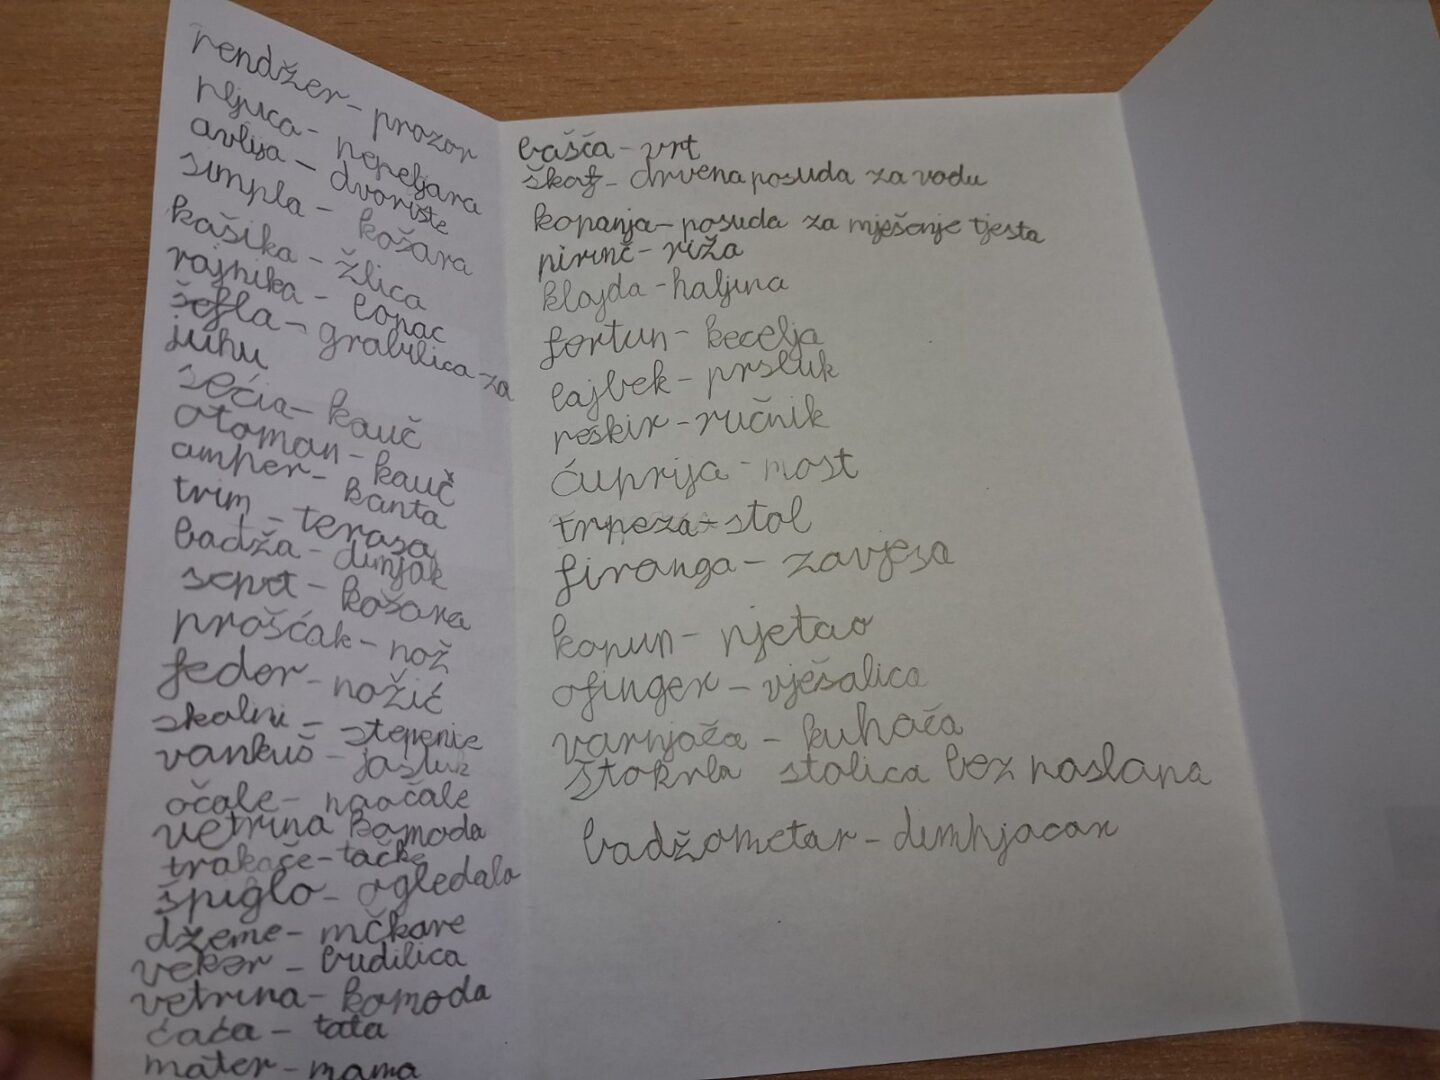 rendžer - prozor
pljuca - pepeljara
avlija - dvorište
simpla - košara
kašika - žlica
rajnika - lonac
šefla - grabilica za
juhu
sećia - kauč
otoman - kauč
amper - kanta
trim - terasa
badža - dimjak
sepet - košara
prošćak - nož
feder - nožić
skalni - stepenie
vankuš - jastuk
očale - naočale
vetrina komoda
trakače - tačke
špiglo - ogledalo
džeme - mčkare
veker - budilica
vetrina - komoda
ćaća - tata
mater - mama
bašča - vrt
škaf - drvena posuda za vodu
kopanja - posuda za mješenje tjesta
pirinč - riža
klajda - haljina
fortun - kecelja
lajbek - prsluk
peškir - ručnik
ćuprija - most
trpeza - stol
firanga - zavjesa
kopun - pjetao
ofinger - vješalica
varnjača - kuhača
štokrla stolica bez naslona
badžometar - dimnjacar